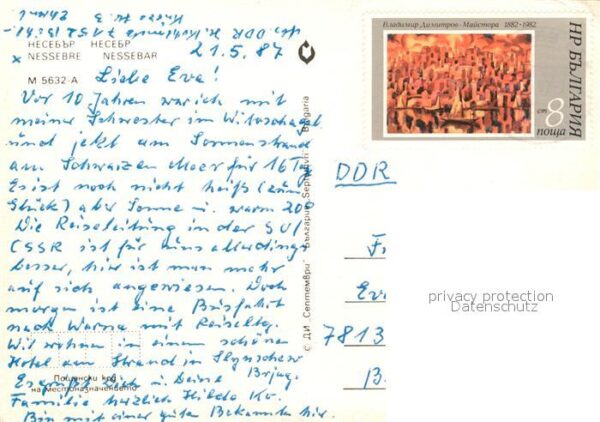 21.5.87
НЕСЕБЪР НЕСЕБР
NESSEBRE NESSEBAR
M 5632-A
Liebe Eva!
Vor 10 Jahren war ich mit
meiner Schwester im
und jetzt am Sonnenstrand
am Schwarzen Meer für 16 Tg.
Es ist noch nicht heiß (zum
Glück) aber Sonne u. warm 20°
Die Reiseleitung in der SU/
CSSR ist für uns allerdings
besser, hier ist man mehr
auf sich angewiesen. Doch
morgen ist eine Busfahrt
nach Warna mit Reiseltg.
Wir wohnen in einem schönen
Hotel am Strand in
Es grüßt Dich u. Deine
Familie herzlich Hilde
Bin mit einer guten Bekannten hier.
Пощенски код
на местоназначението
С ДИ „Септември" България Septemvri Bulgaria
Владимир Димитров-Майстора 1882-1982
НР БЪЛГАРИЯ
ст 8
поща
DDR
Ev
7813
B
privacy protection
Datenschutz